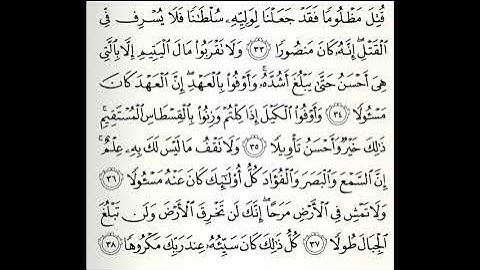 قُتِلَ مَظْلُومًا فَقَدْ جَعَلْنَا لِوَلِيِّهِۦ سُلْطَٰنًا فَلَا يُسْرِف فِّى
ٱلْقَتْلِ ۖ إِنَّهُۥ كَانَ مَنصُورًا ﴿٣٣﴾ وَلَا تَقْرَبُوا۟ مَالَ ٱلْيَتِيمِ إِلَّا بِٱلَّتِى
هِىَ أَحْسَنُ حَتَّىٰ يَبْلُغَ أَشُدَّهُۥ ۚ وَأَوْفُوا۟ بِٱلْعَهْدِ ۖ إِنَّ ٱلْعَهْدَ كَانَ
مَسْـُٔولًا ﴿٣٤﴾ وَأَوْفُوا۟ ٱلْكَيْلَ إِذَا كِلْتُمْ وَزِنُوا۟ بِٱلْقِسْطَاسِ ٱلْمُسْتَقِيمِ ۚ
ذَٰلِكَ خَيْرٌ وَأَحْسَنُ تَأْوِيلًا ﴿٣٥﴾ وَلَا تَقْفُ مَا لَيْسَ لَكَ بِهِۦ عِلْمٌ ۚ
إِنَّ ٱلسَّمْعَ وَٱلْبَصَرَ وَٱلْفُؤَادَ كُلُّ أُو۟لَٰٓئِكَ كَانَ عَنْهُ مَسْـُٔولًا ﴿٣٦﴾
وَلَا تَمْشِ فِى ٱلْأَرْضِ مَرَحًا ۖ إِنَّكَ لَن تَخْرِقَ ٱلْأَرْضَ وَلَن تَبْلُغَ
ٱلْجِبَالَ طُولًا ﴿٣٧﴾ كُلُّ ذَٰلِكَ كَانَ سَيِّئُهُۥ عِندَ رَبِّكَ مَكْرُوهًا ﴿٣٨﴾